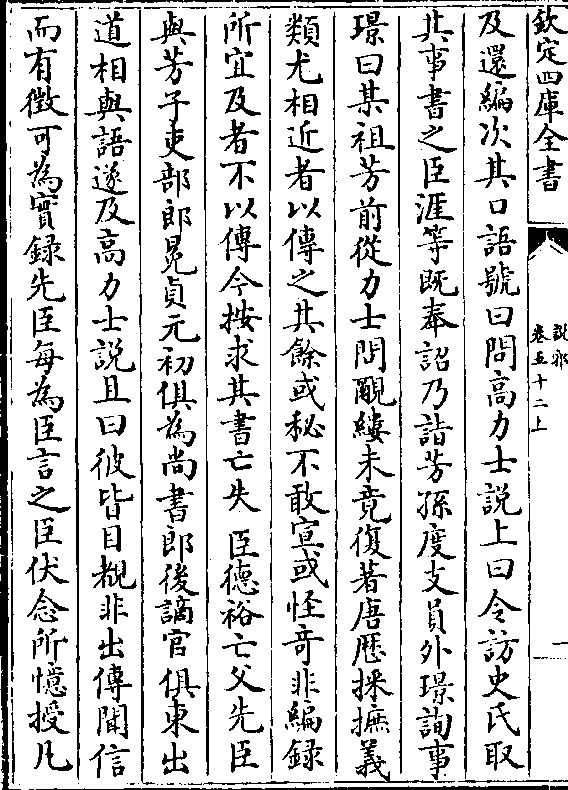 欽定四庫全書
說郛
卷五十二上
一
及還編次其口語號曰問高力士說上曰令訪史氏取
其事書之臣涯等既奉詔乃詣芳孫度支員外璟詢事
璟曰某祖芳前從力士問覼縷未竟復著唐厯採摭義
類尤相近者以傳之其餘或秘不敢宣或怪竒非編錄
所宜及者不以傳今按求其書亡失臣德裕亡父先臣
與芳子吏部郎冕貞元初俱為尚書郎後謫官俱東出
道相與語遂及高力士說且曰彼皆目覩非出傳聞信
而有徵可為實録先臣每為臣言之臣伏念所憶授凡